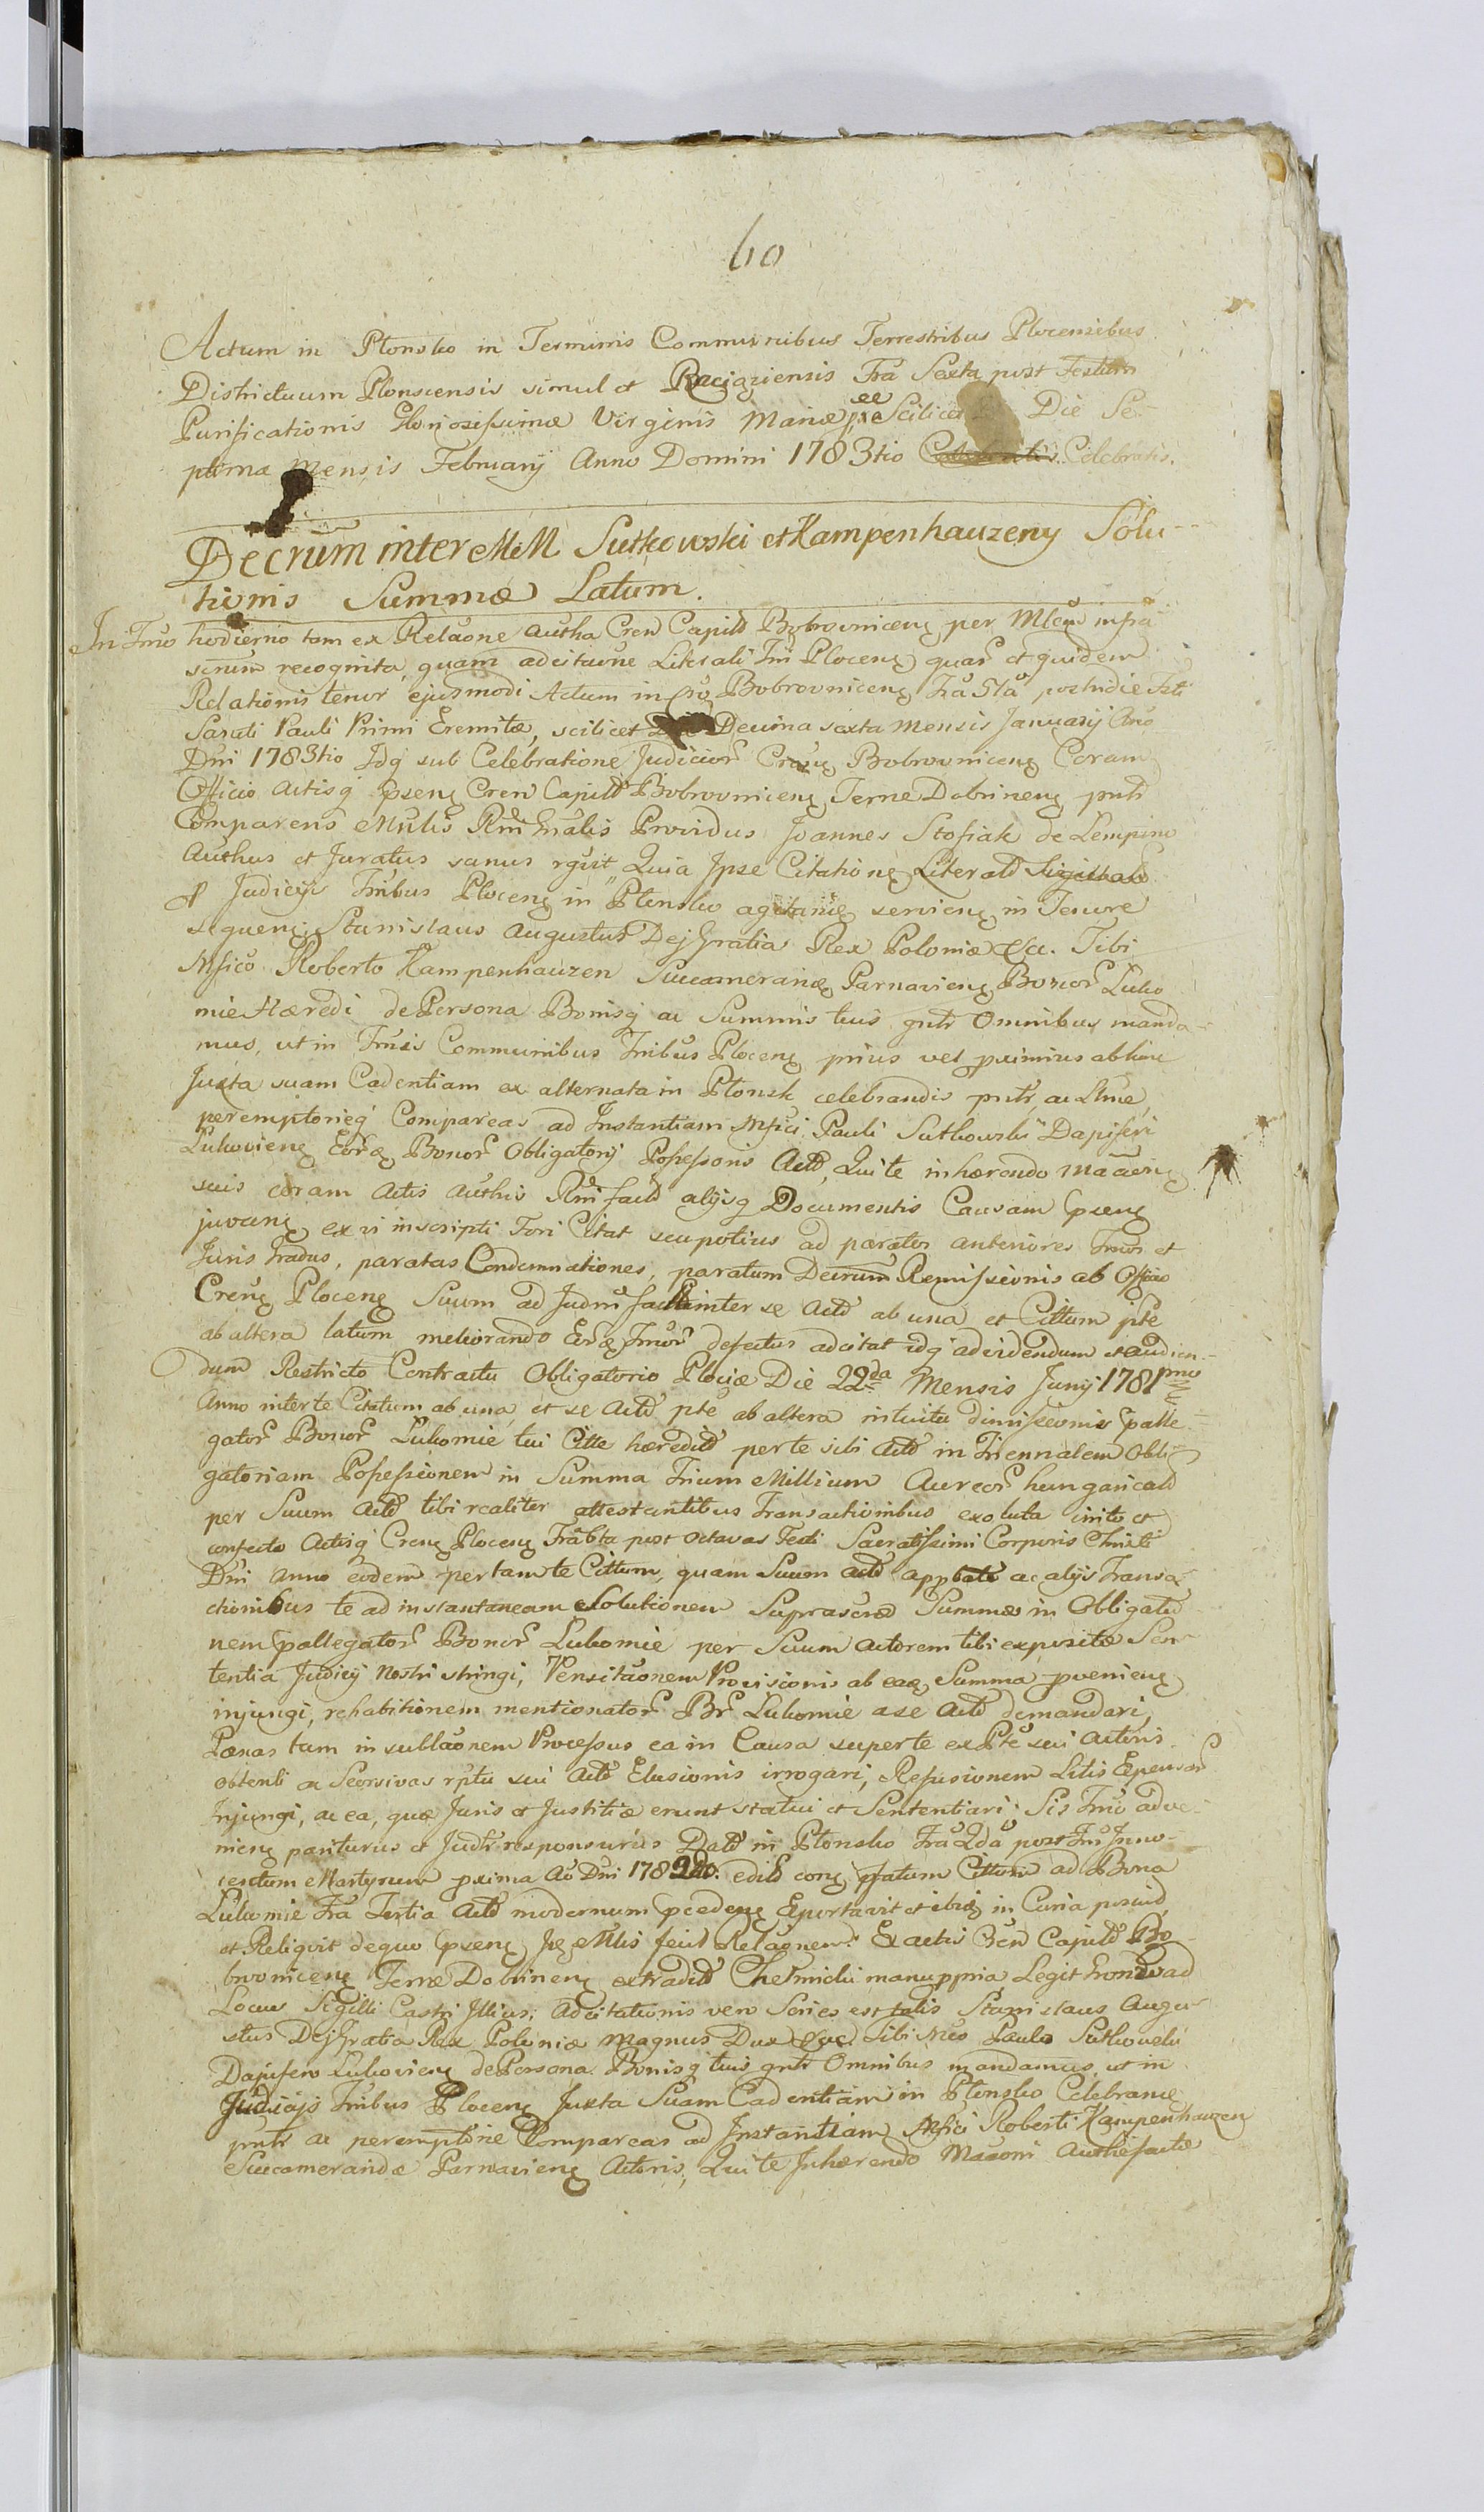 60
Actum in Płonsko in Terminis Communibus Terrestribus Plocensibus
Districtuum Plonscensis simul et Raciąziensis Fra Sexta post Festum
Purificationis Gloriosissimæ Virginis Mariæ Scilicet Die Se-
ptima Mensis February Anno Domini 1783tio Celebratis.
Decrum inter MM Sutkowski et Kampenhauzeny Solu-
tionis Summæ Latum.
In Tmo hodierno tam ex Relaone Autha Cren Capitl Bobrowniceng per Mlem infra
scrum recognita, quam adcitaone Literali Tri Ploceng quar et quidem
Relationis tenor ejusmodi Actum in Bobrowniceng Fra 5ta postridie Fsti
Sancti Pauli Primi Eremitæ, scilicet Decima sexta Mensis January Ano
Dni 1783tio Idq sub Celebratione Judicior Bobrowniceng Coram
Officio Actisq pseng Cren Capitl Bobrowniceng Terræ Dobrineng pntr
Comparens Mnlis Rni Gnalis Providus Joannes Stosiak de Lempino
Authus et Juratus sanus Quia Ipse Citationg Literald
Judicijs Tribus Ploceng in Płonsko agitand servieng in Tenore
sequeng Stanislaus Augustus Dei Gratia Rex Poloniæ &c. Tibi
Mfico Roberto Kampenhauzen Succamerariæ Parnavieng Bonor Luko
mie Hæredi de Persona Bonisq ac Summis tuis gntr Omnibus manda-
mus, ut in Tmis Communibus Tribus Ploceng prius vel proximius abhinc
Juxta suam Cadentiam ex alternata in Płonsk celebrandis pntr, ac
peremptorieq Compareas ad Instantiam Mfici Pauli Sutkowski Dapiferi
Lukovieng Eorq Bonor Obligatorij Possessoris Actd, Qui te inhærendo
suis coram Actis Authis Rni factd alijsq Documentis Causam pseng
juvang ex vi inscripti Fori Citat seu potius ad paratos anteriores Tmos et
Juris Gradus, paratas Condemnationes, paratum Decrum Remissionis ab Officio
Creng Ploceng Suum ad inter se Actd ab una et Cittum pte
ab altera latum meliorando Eorq Tmor defectus adcitat idq ad videndum et audien-
dum Restricto Contractu Obligatorio Plociæ Die 22da Mensis Junij 1781mo
Anno inter te Citatum ab una, et se Actd pte ab altera intuitu dimissionis palle-
gator Bonor Lukomie tui Citte hæreditd per te sibi Actd in Triennalem Obli-
gatoriam Possessionem in Summa Trium Millium Aureor hungaricald
per Suum Actd tibi realiter attestantibus Transactionibus exoluta inito et
confecto Actisq Creng Ploceng Fra 6ta post Octavas Festi Sacratissimi Corporis Christi
Dni Anno eodem per tam te Cittum, quam Suum Actd ac alijs Transa-
ctionibus te ad instantaneam Solutionem Suprascræ Summæ in Obligatio
nem pallegator Bonor Lukomie per Suum Actorem tibi expositæ Sen-
tentia Judicij Nostri stringi, Pensitaonem Provisionis ab eaq Summa provenieng
injungi, rehabitionem mentionator Br Lukomie a se Actd demandari,
Pænas tam in sublaonem Processus ea in Causa super te ex Pte sui Actoris
obtenti ac Seorsivas rptu sui Actd Elusionis irrogari, Refusionem Litis Expensar
Injungi, ac ea, quæ Juris et Justitiæ erunt statui et Sententiari; Sis Tmo adve-
nieng pariturus et Judr responsurus Datd in Płonsko Fra 2da post Fm Inno-
centum Martyrum proxima Ao Dni 1782do. ad Bona
Lukomie Fra Tertia Actd modernum præcedeng Exportavit et ibiq in Curia posuid
et Reliqvit dequo pseng Mlis fecid Relaonem. Ex actis Cren Capitld Bo-
browniceng Terræ Dobrineng extraditd Chełmicki manuppria Legit
Locus Sigilli Castri Illius; Adcitationis vero Series est talis Stanislaus Augu-
stus Dei Gratia Rex Poloniæ Magnus Dux &c. Tibi Mco Paulo Sutkowski
Dapifero Lukovieng de Persona Bonisq tuis gntr Omnibus mandamus, ut in
Judicijs Tribus Ploceng Juxta Suam Cadentiam in Płonsko Celebrane
pntr ac peremptorie Compareas ad Instantiam Mfici Roberti Kampenhauzen
Succamerandæ Parnavieng Actoris, Qui te Inhærendo